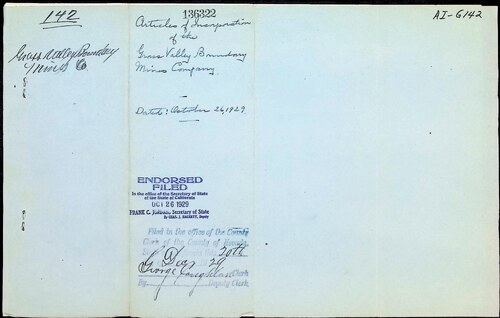 142
Grass Valley Boundary
Mines Co.
136322
Articles of Incorporation
of the
Grass Valley Boundary
Mines Company.
Dated: October 26, 1929.
ENDORSED
FILED
In the office of the Secretary of State
of the State of California
OCT 26 1929
FRANK C. JORDAN, Secretary of State
By CHAS. J. HAGERTY, Deputy
Filed in the office of the County
Clerk of the County of Nevada
20th
Dec 29
George
Clerk
By Deputy Clerk
AI-G142